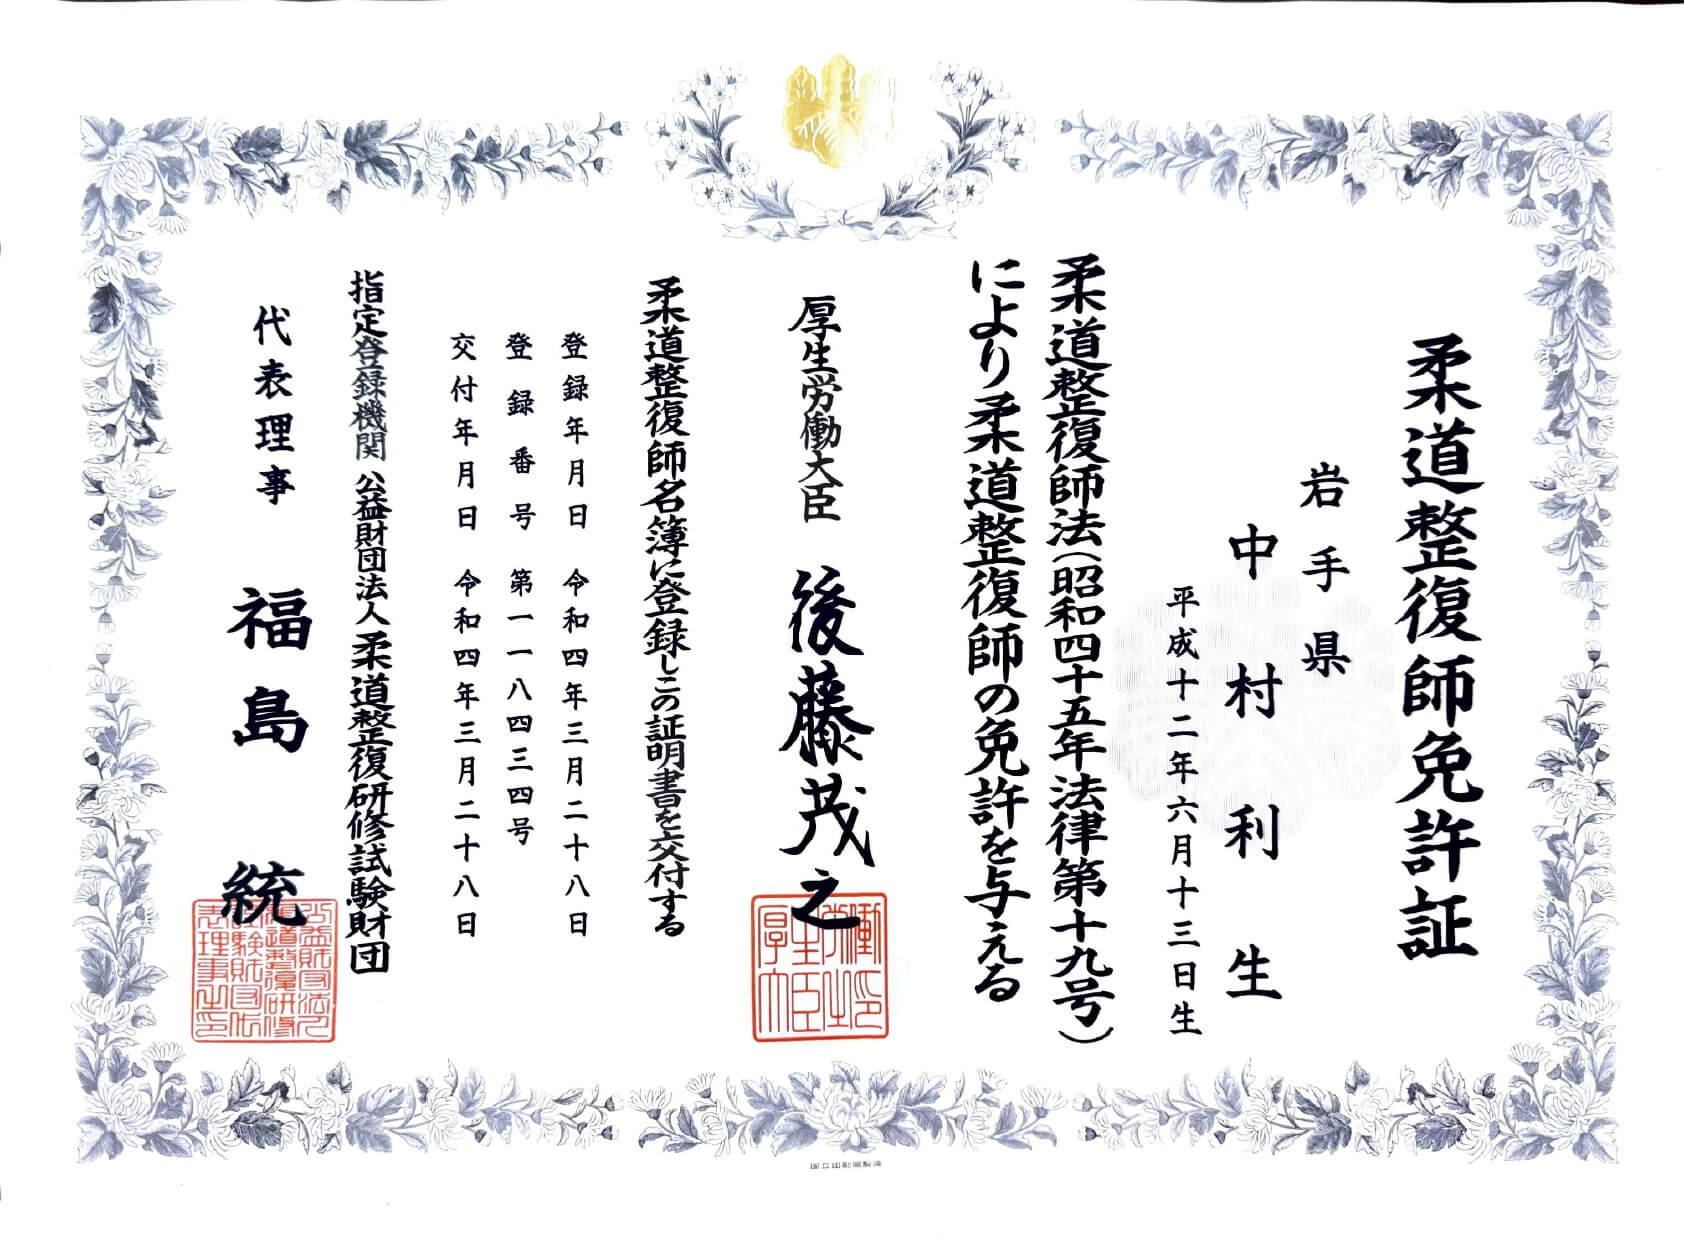 柔道整復師免許証
岩手県
中村利生
平成十二年六月十三日生
柔道整復師法(昭和四十五年法律第十九号)
により柔道整復師の免許を与える
厚生労働大臣 後藤茂之
柔道整復師名簿に登録しこの証明書を交付する
登録年月日 令和四年三月二十八日
登録番号 第一一八四三四号
交付年月日 令和四年三月二十八日
指定登録機関 公益財団法人 柔道整復研修試験財団
代表理事 福島統